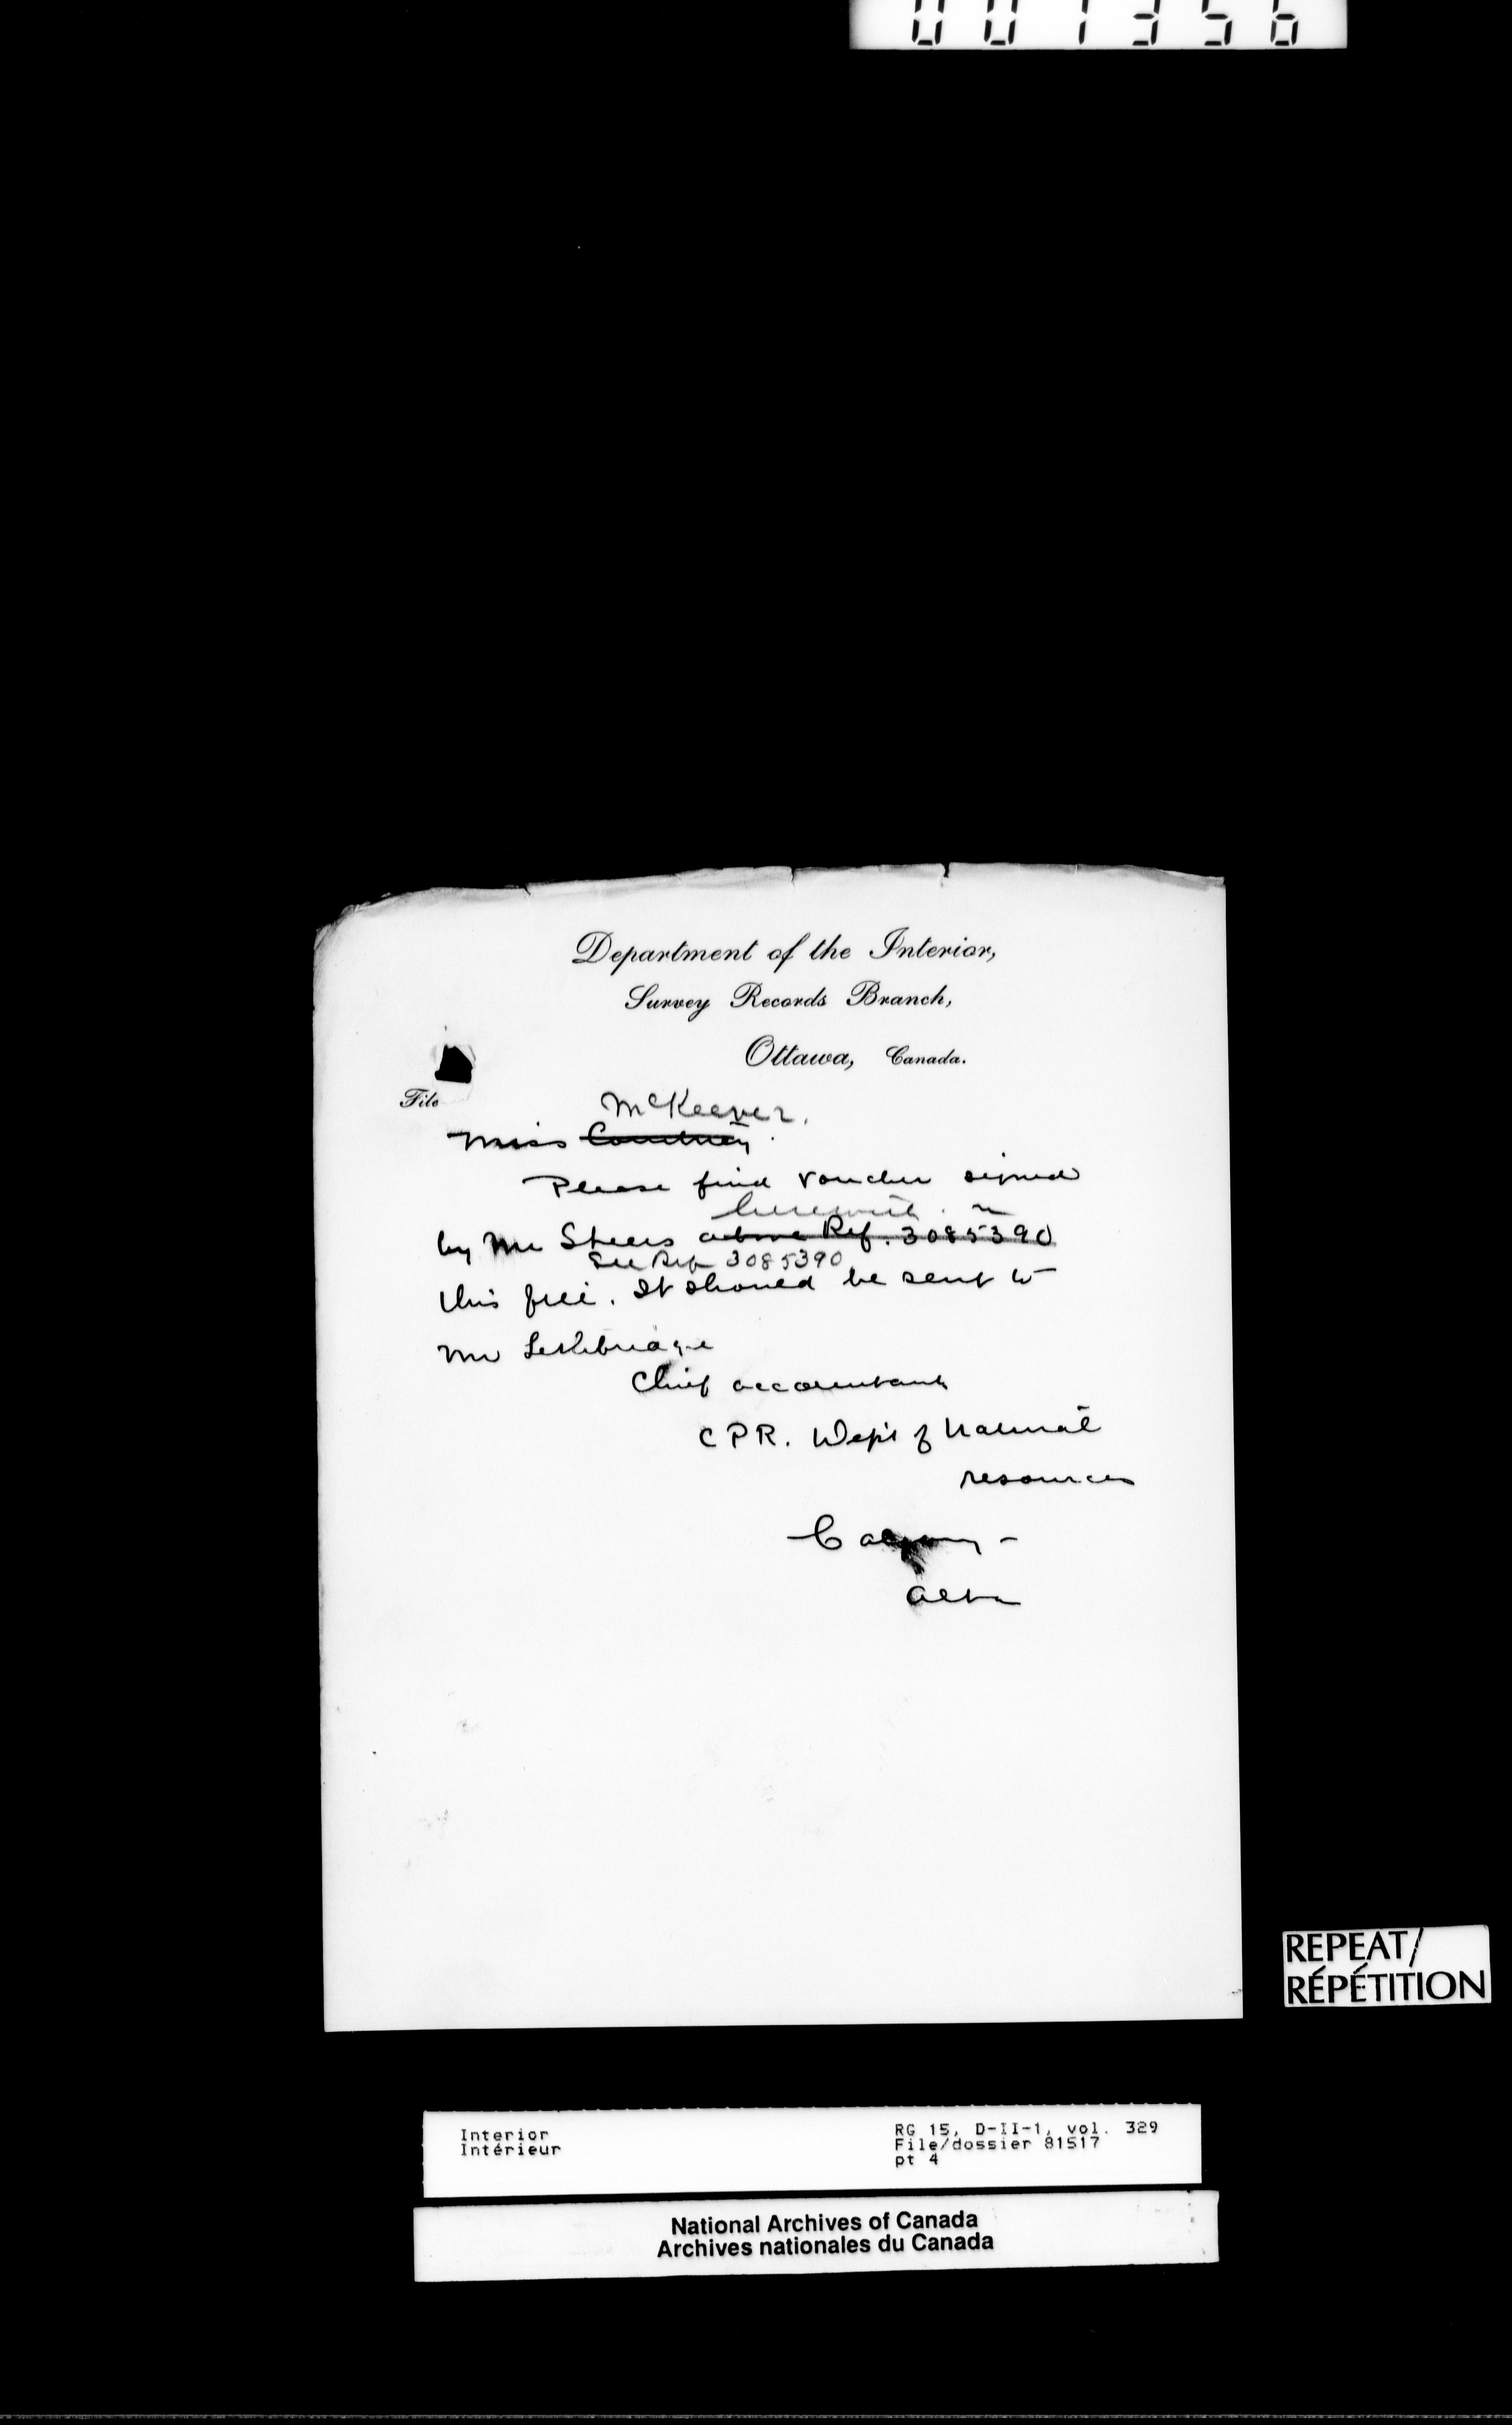 001356
Department of the Interior,
Survey Records Branch,
Ottawa, Canada.
File
McKeever.
Miss Courtney.
Please find voucher signed
herewith. ~
by Mr Steers above Ref. 3085390
See Ref 3085390
this file. It should be sent to
Mr Lethbridge
Chief accountant
CPR. Dept of Natural
resources
Calgary -
Alta
REPEAT/
RÉPÉTITION
Interior
Intérieur
RG 15, D-II-1, vol. 329
File/dossier 81517
pt 4
National Archives of Canada
Archives nationales du Canada